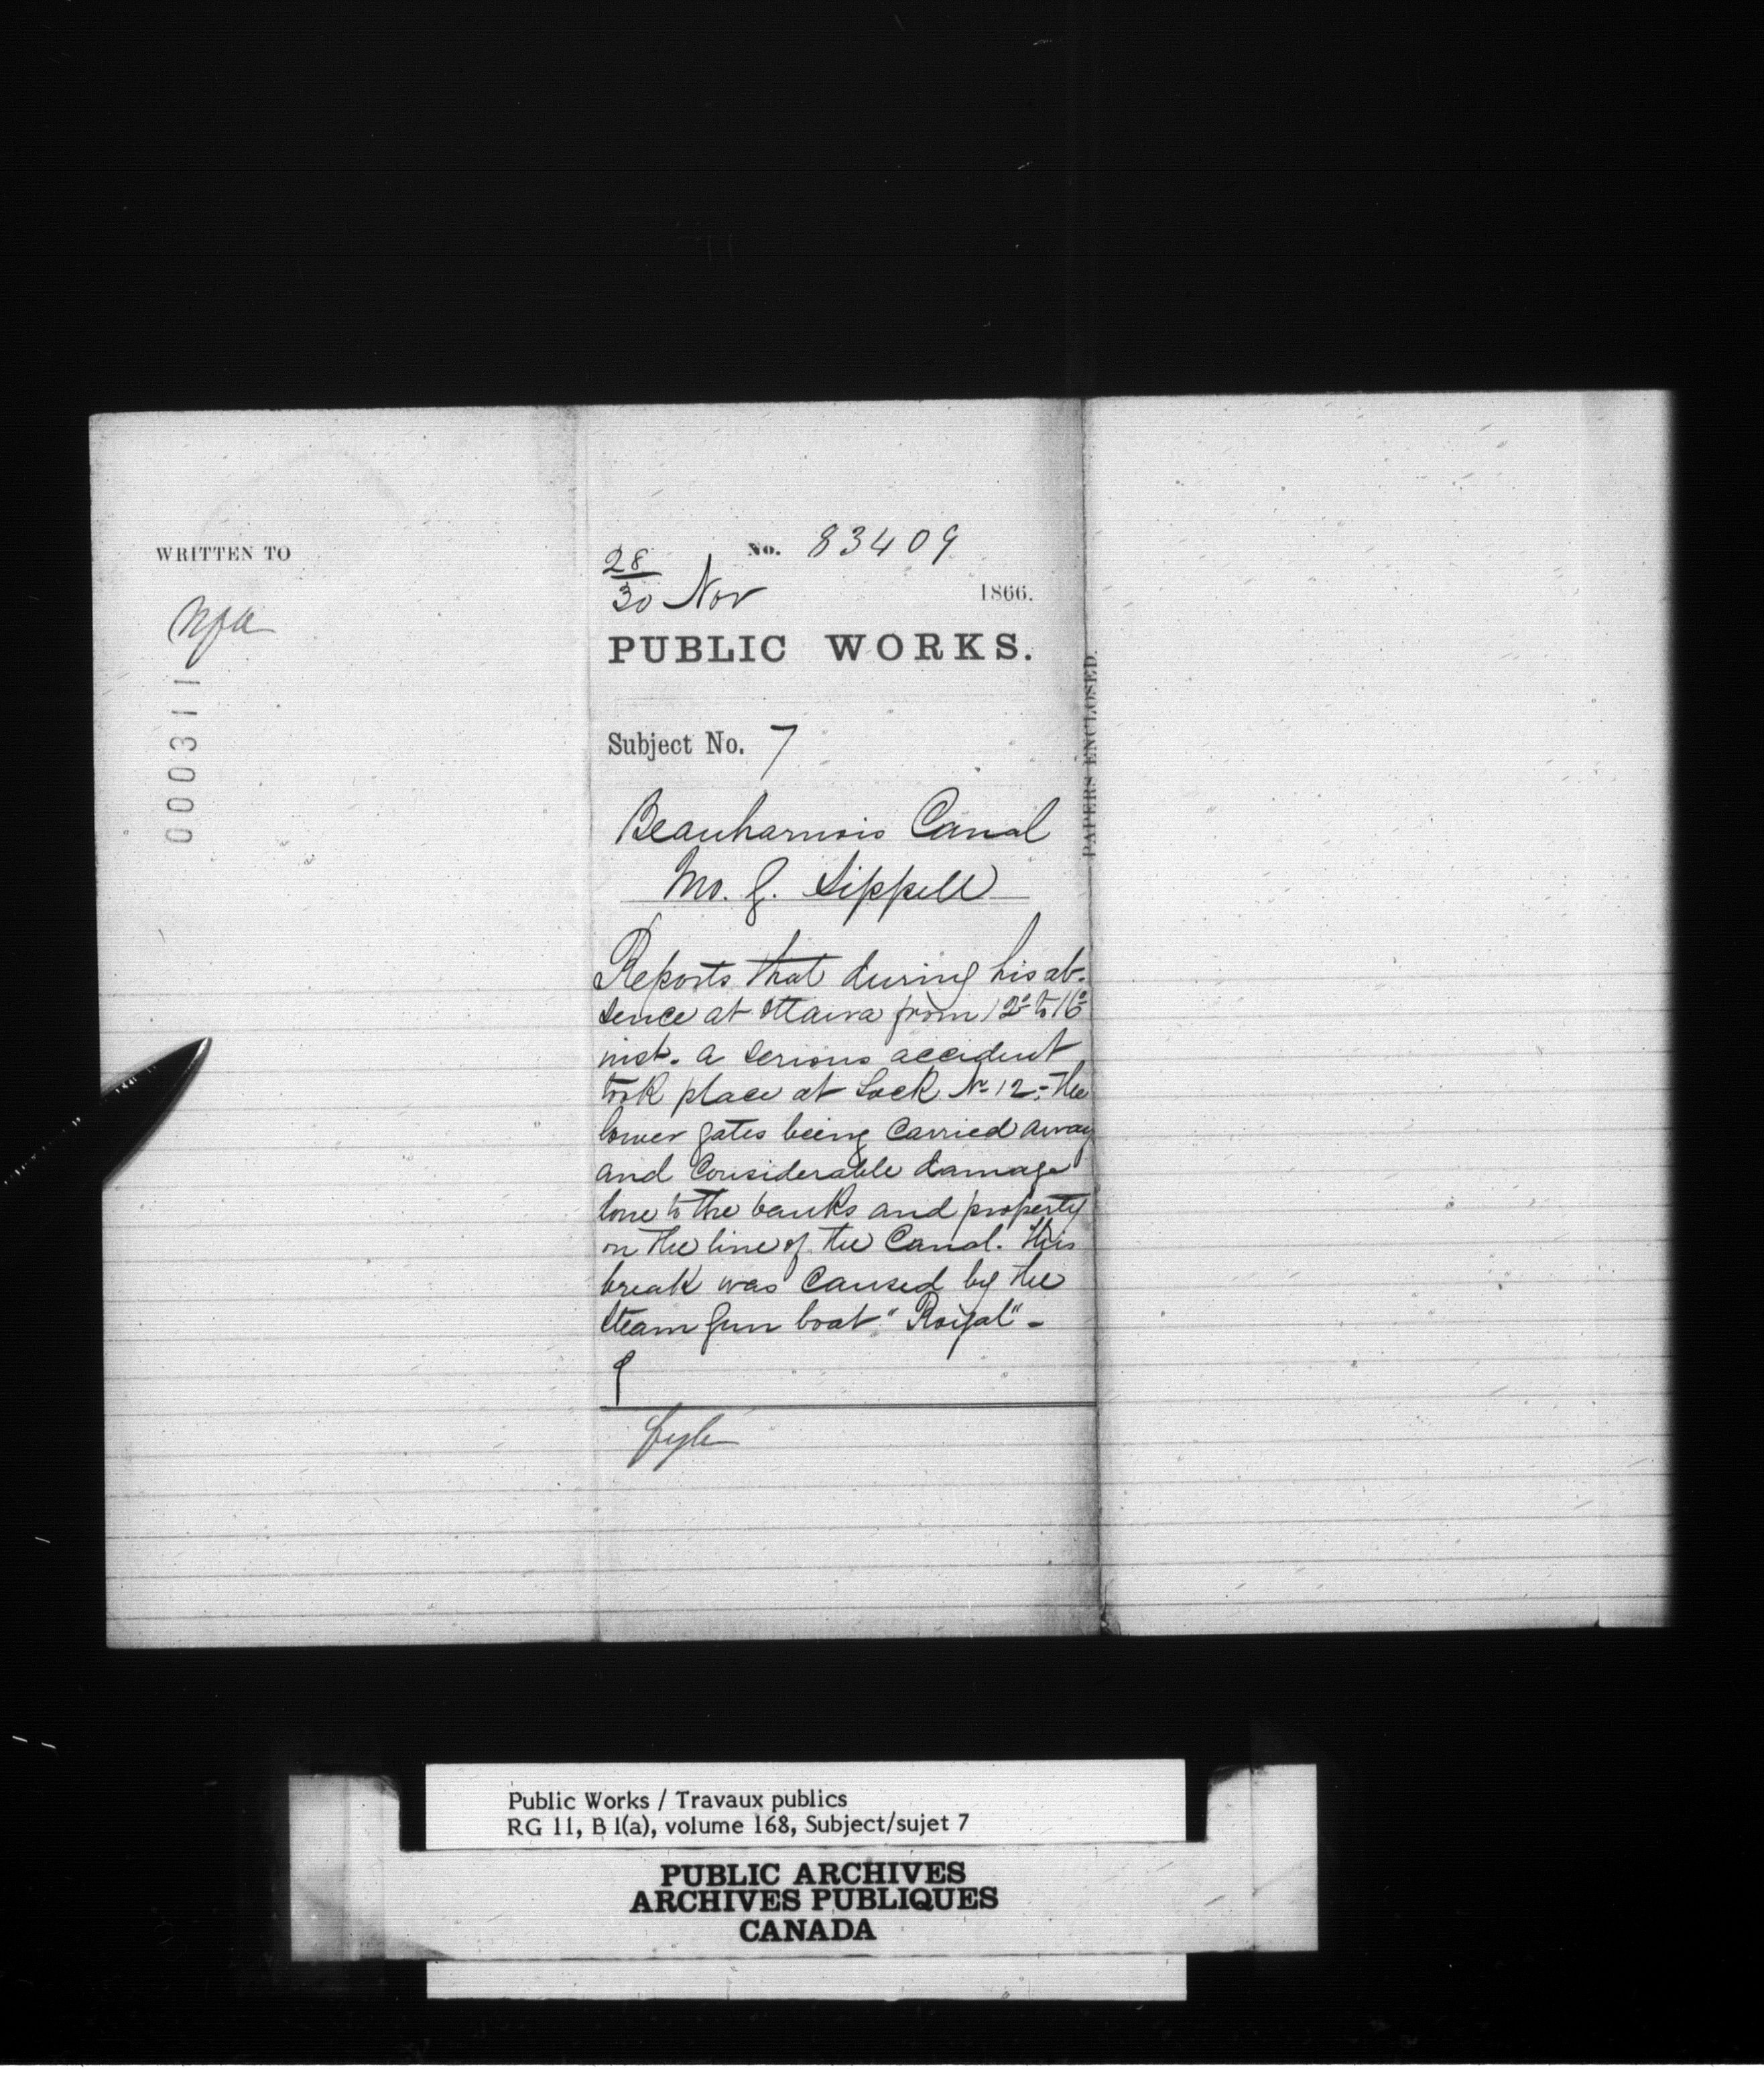 WRITTEN TO
nfa
000311
No. 83409
28
30 Nov 1866.
PUBLIC WORKS.
Subject No. 7
Beauharnois Canal
Mr. G. Sippell
Reports that during his ab-
sence at Ottawa from 12th to 16th
inst. a serious accident
took place at Lock No 12; the
lower gates being carried away
and considerable damage
done to the banks and property
on the line of the Canal. This
break was caused by the
Steam Gun boat "Royal" -
Fyle
PAPERS ENCLOSED.
Public Works / Travaux publics
RG 11, B 1(a), volume 168, Subject/sujet 7
PUBLIC ARCHIVES
ARCHIVES PUBLIQUES
CANADA